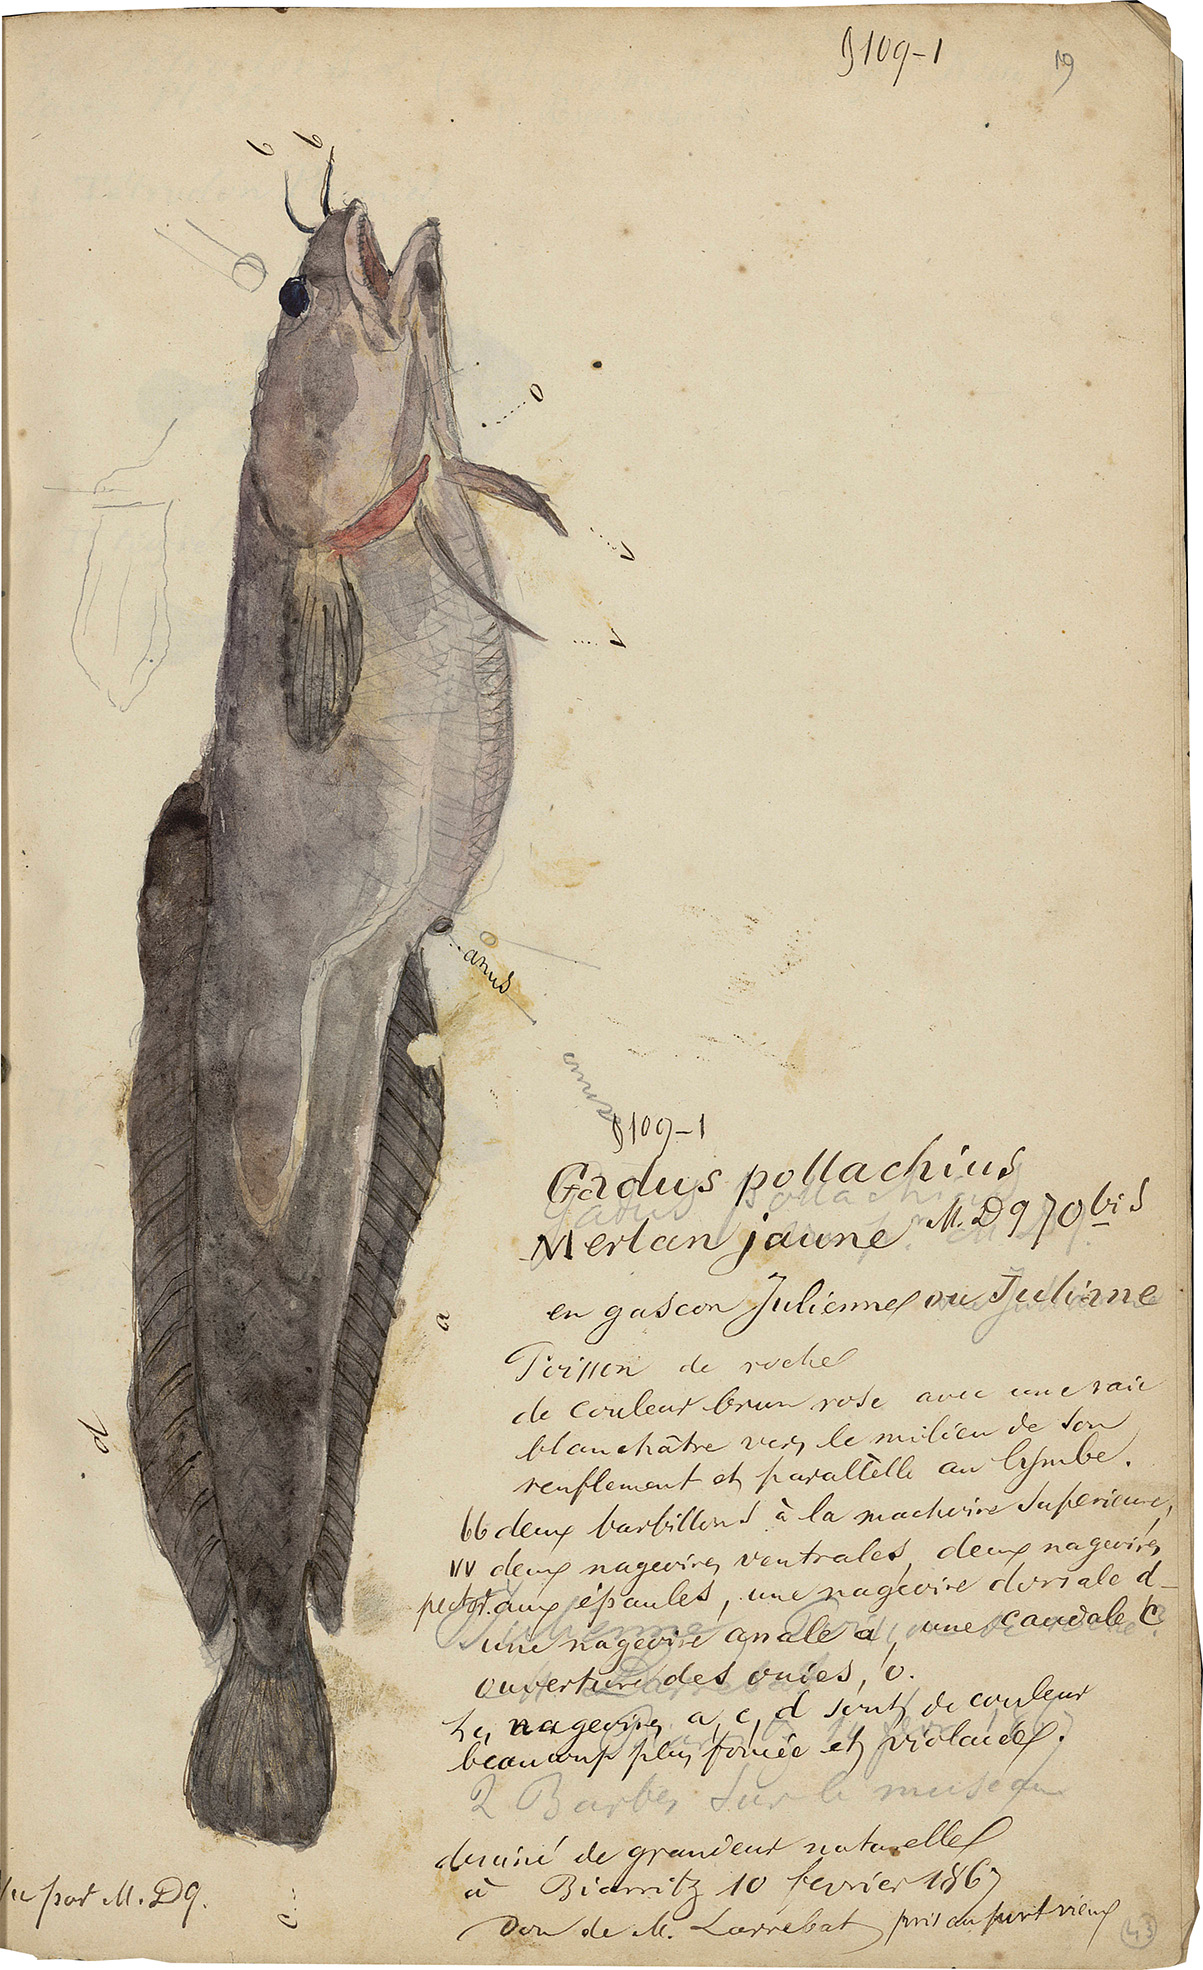 §109-1
19
b b
o
v
v
anus
anus
§109-1
Gadus pollachius
Merlan jaune M. D 970 bis
en gascon Julienne ou Juliane
Poisson de roche
de couleur brun rose avec une raie
blanchâtre vers le milieu de son
renflement et parallèlle au lymbe.
bb deux barbillons à la machoire superieure,
vv deux nageoires ventrales, deux nageoires
pector. aux épaules, une nageoire dorsale d-
une nageoire anale a, une caudale C
ouverture des ouies, o.
Les nageoires a, c, d sont de couleur
beaucoup plus foncée et violacée.
2 Barbes sur le museau
dessiné de grandeur naturelle
à Biarritz 10 fevrier 1867
Don de M. Larrebat pris au port vieux
a
D
Vu par M. D 9.
c
43